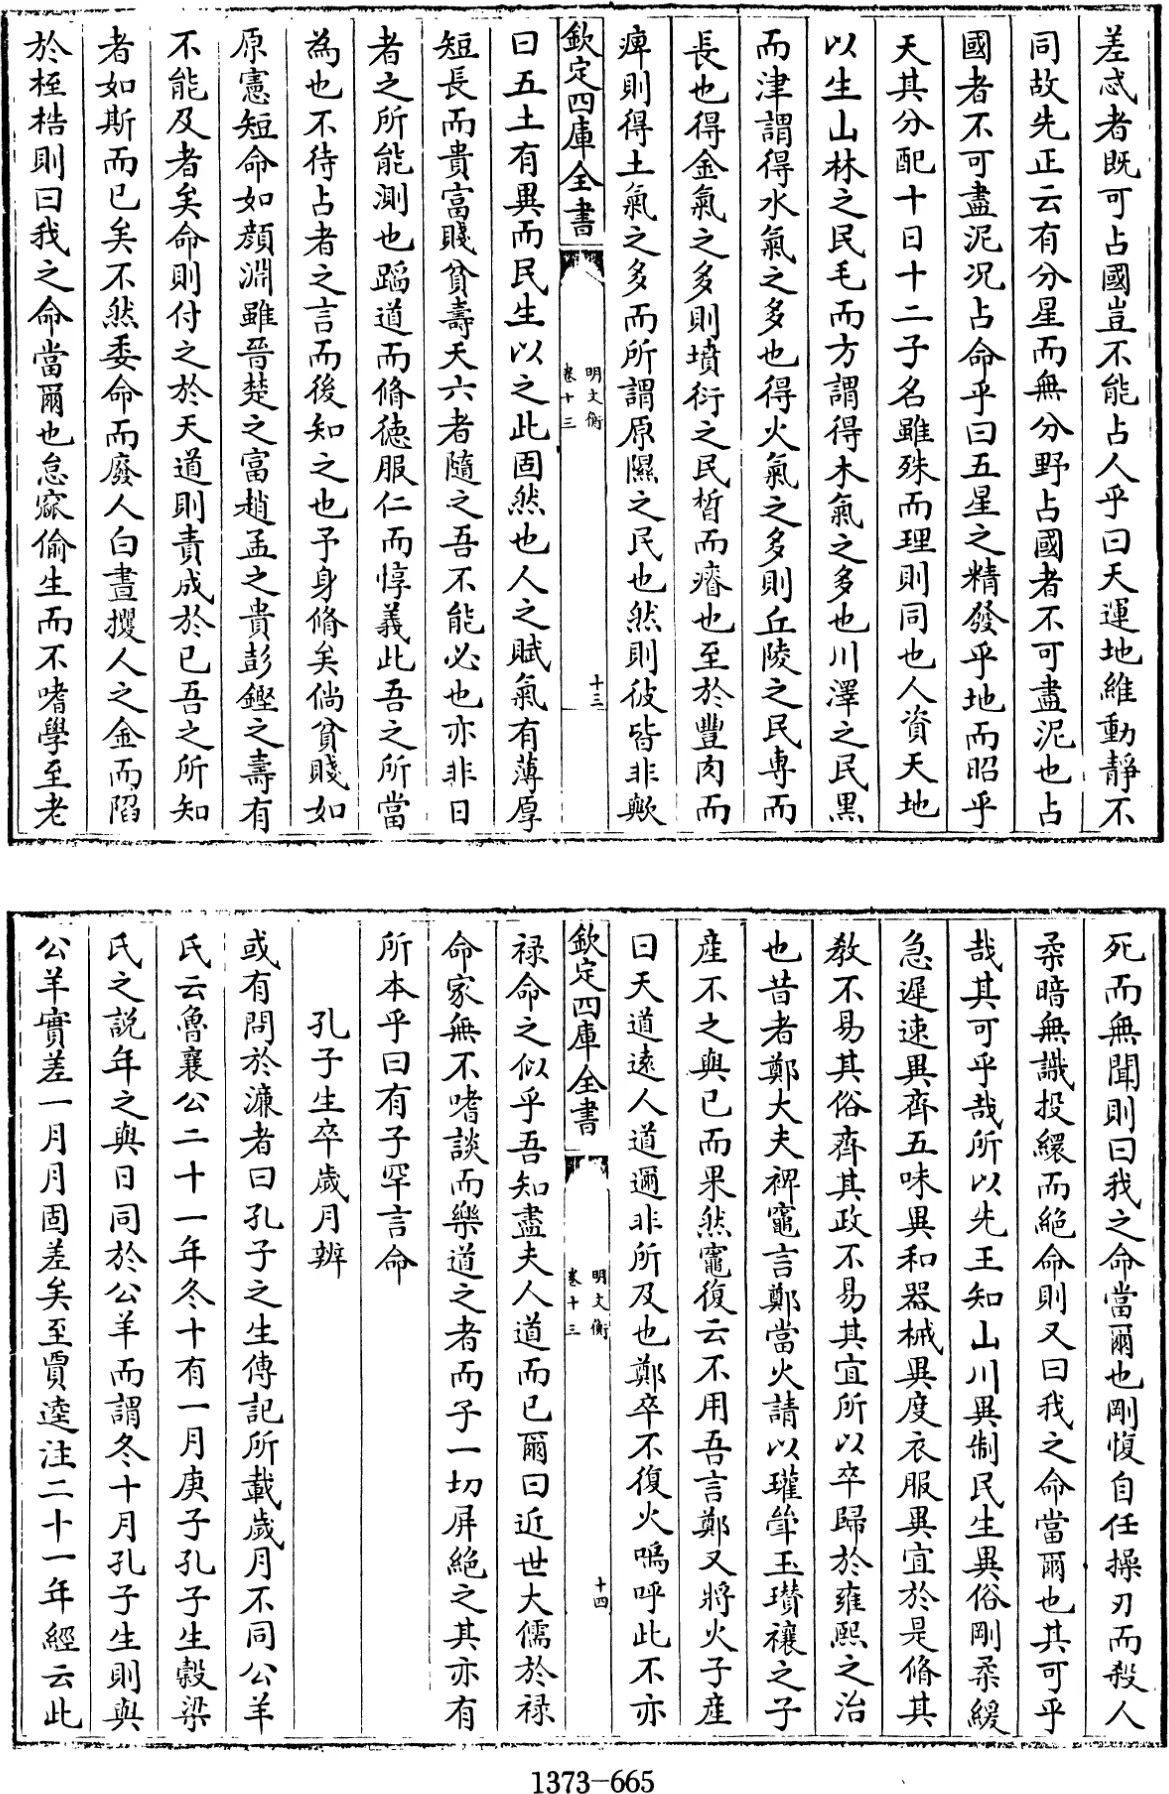 差忒者既可占國豈不能占人乎曰天運地維動靜不
同故先正云有分星而無分野占國者不可盡泥也占
國者不可盡泥况占命乎曰五星之精發乎地而昭乎
天其分配十日十二子名雖殊而理則同也人資天地
以生山林之民毛而方謂得木氣之多也川澤之民黑
而津謂得水氣之多也得火氣之多則丘陵之民專而
長也得金氣之多則墳衍之民晳而瘠也至於豐肉而
痺則得土氣之多而所謂原隰之民也然則彼皆非歟
欽定四庫全書
明文衡
卷十三
十三
曰五土有異而民生以之此固然也人之賦氣有薄厚
短長而貴富賤貧壽夭六者隨之吾不能必也亦非日
者之所能測也蹈道而脩徳服仁而惇義此吾之所當
為也不待占者之言而後知之也予身脩矣倘貧賤如
原憲短命如顔淵雖晉楚之富趙孟之貴彭鏗之壽有
不能及者矣命則付之於天道則責成於已吾之所知
者如斯而已矣不然委命而廢人白晝攫人之金而陷
於桎梏則曰我之命當爾也怠窳偷生而不嗜學至老
死而無聞則曰我之命當爾也剛愎自任操刃而殺人
柔暗無識投繯而絶命則又曰我之命當爾也其可乎
哉其可乎哉所以先王知山川異制民生異俗剛柔緩
急遲速異齊五味異和器械異度衣服異宜於是脩其
教不易其俗齊其政不易其宜所以卒歸於雍熙之治
也昔者鄭大夫裨竈言鄭當火請以瓘斝玉瓚禳之子
産不之與已而果然竈復云不用吾言鄭又將火子産
曰天道逺人道邇非所及也鄭卒不復火嗚呼此不亦
欽定四庫全書
明文衡
卷十三
十四
禄命之似乎吾知盡夫人道而已爾曰近世大儒於禄
命家無不嗜談而樂道之者而子一切屏絶之其亦有
所本乎曰有子罕言命
孔子生卒歲月辨
或有問於濂者曰孔子之生傳記所載歲月不同公羊
氏云魯襄公二十一年冬十有一月庚子孔子生榖梁
氏之説年之與日同於公羊而謂冬十月孔子生則與
公羊實差一月月固差矣至賈逵注二十一年經云此
1373-665